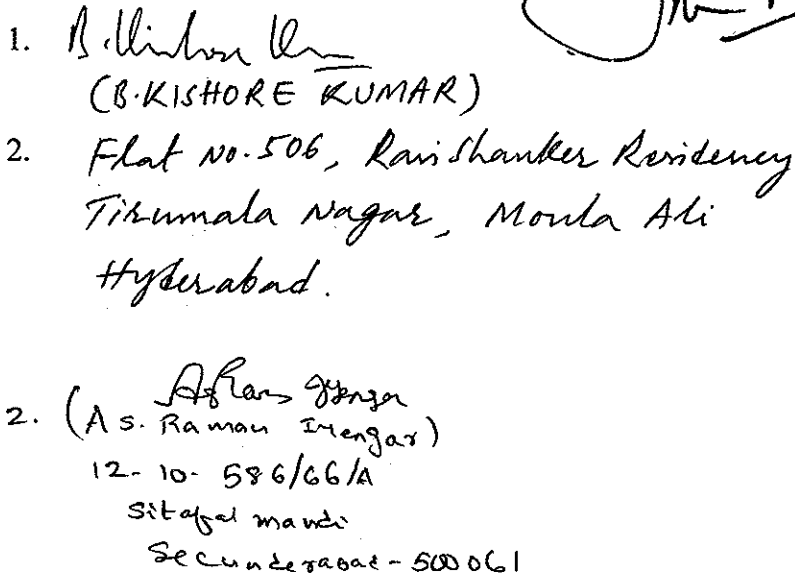 1. B. Kishore Kumar
(B. KISHORE KUMAR)
2. Flat No. 506, Ravishanker Residency
Tirumala Nagar, Moula Ali
Hyderabad.
2. (A S. Raman Iyengar)
12-10-586/66/A
Sitafal mandi
Secunderabad - 500061